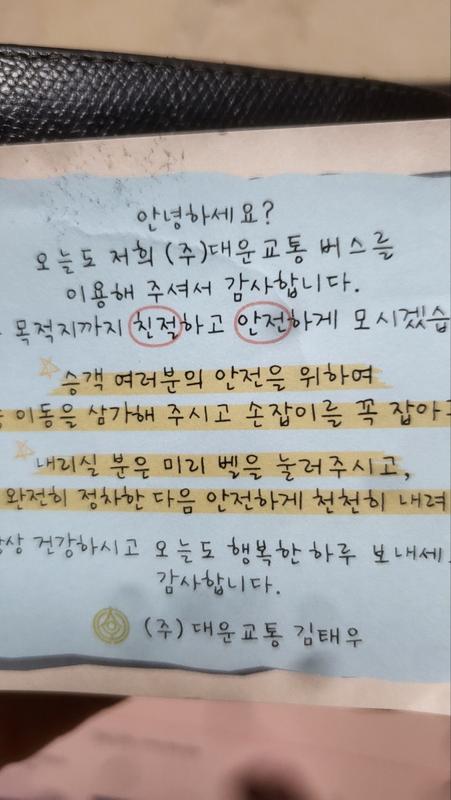 안녕하세요?
오늘도 저희 (주)대운교통 버스를
이용해 주셔서 감사합니다.
목적지까지 친절하고 안전하게 모시겠습
승객 여러분의 안전을 위하여
이동을 삼가해 주시고 손잡이를 꼭 잡아
내리실 분은 미리 벨을 눌러주시고,
완전히 정차한 다음 안전하게 천천히 내려
건강하시고 오늘도 행복한 하루 보내세
감사합니다.
(주) 대운교통 김태우